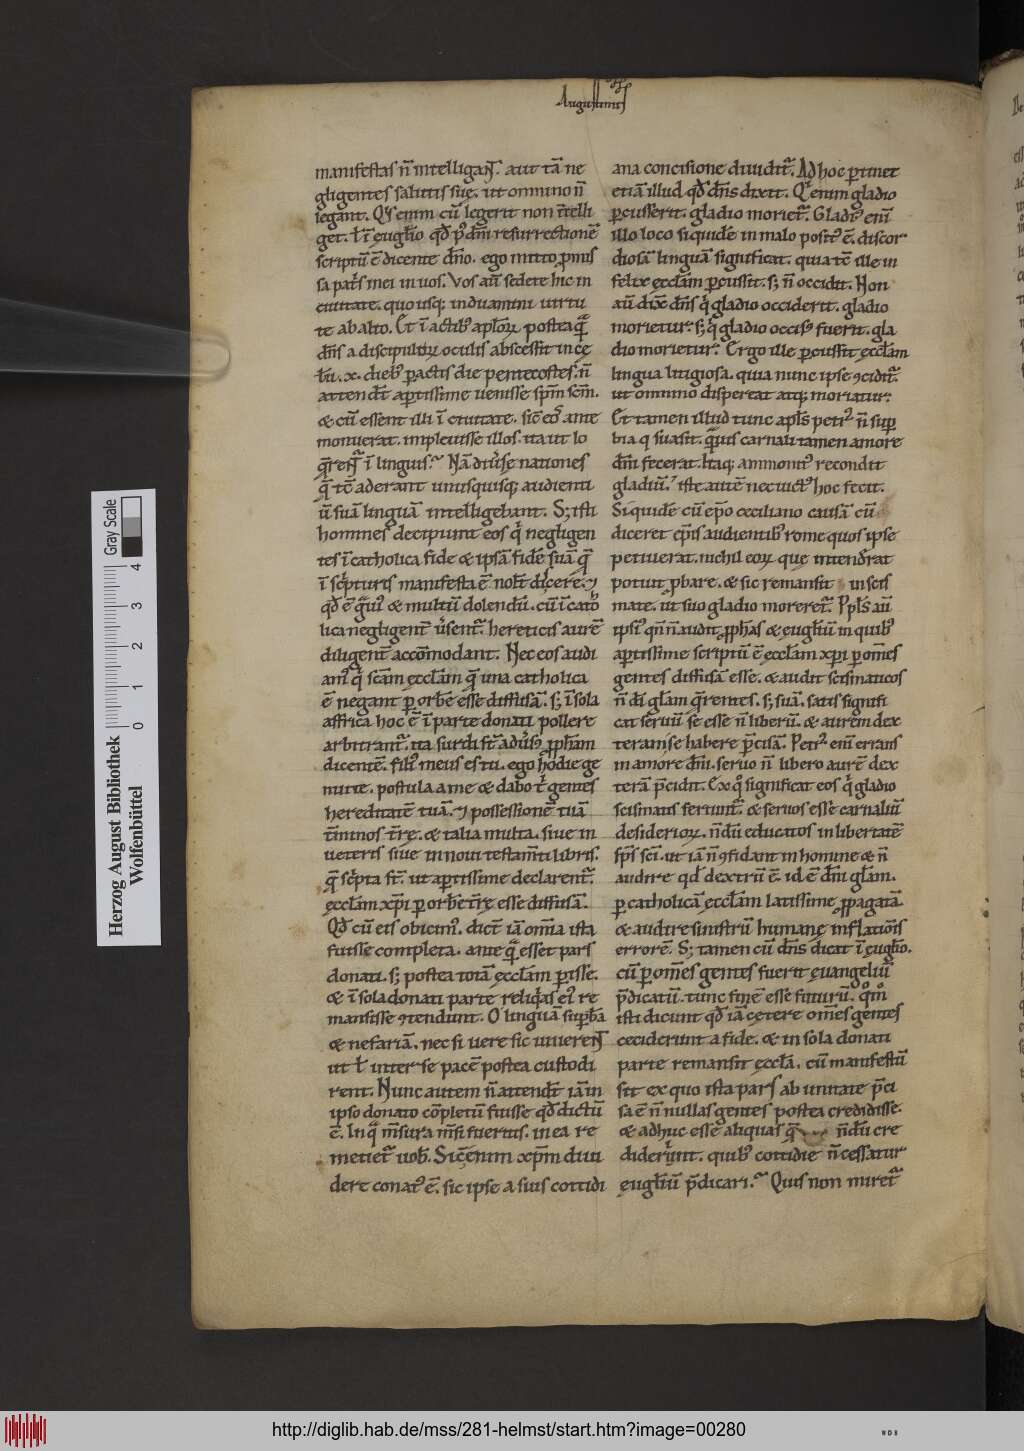 Augustinus
manifestas n̄ intelligant. aut tā ne
gligentes salutis suę. ut omnino n̄
legant. Qͥs enim cū legerit non ītelli
get. t̄ ī euglio qd̄ p⁹ dn̄i resurrectionē
scriptū ē dicente dn̄o. ego mitto ꝓmis
sa pats̄ mei in uos. Vos aū sedete hic in
ciuitate. quo usq; induamini uirtu
te ab alto. Et ī actib⁹ aplōꝝ postea q̄
dn̄s a discipuloꝝ oculis abscessit in cę
lū. x. dieb⁹ ꝑactis die pentecostes. n̄
attendt̄ aꝑtissime uenisse sp̄m sc̄m.
& cū essent illi ī ciuitate. sic̄ eos ante
monuerat. impleuisse illos. ita ut lo
q̄rent̄ ī linguis. Nā diu̾se nationes
q̄ tc̄ aderant unusquisq; audienti
ū suā linguā intelligebant. S; isti
homines decipiunt eos qͥ negligen
tes ī catholica fide & ipsā fidē suā q̄
ī scpturis manifesta ē nolt̄ discere. ⁊
qd̄ ē gͣui⁹ & multū dolendū. cū ī cato
lica negligent̄ u̾sent̄. hereticis aurē
diligent̄ accōmodant. Nec eos audi
am⁹ qͥ scām ęcclām q̄ una catholica
ē negant ꝑ orbē esse diffusā. s; ī sola
affrica hoc ē ī parte donati pollere
arbitrant̄. ita surdi st̄ adu̾s⁹ ꝓph̄am
dicentē. fili⁹ meus es tu. ego hodie ge
nui te. postula a me & dabo tͥ gentes
hereditatē tuā. ⁊ possessionē tuā
t̄minos t̄rę. & talia multa. siue in
ueteris siue in noui testam̄ti libris.
q̄ scpta st̄. ut aꝑtissime declarent̄.
ęcclām xp̄i ꝑ orbē t̄rę esse diffusā.
Qd̄ cū eis obicim⁹. dict̄ iā om̄ia ista
fuisse completa. ante q̄ esset pars
donati. s; postea totā ęcclām ꝑisse.
& ī sola donati parte reliqͥas ei⁹ re
mansisse ↄtendunt. O linguā suꝑbā
& nefariā. nec si uere sic uiuerent
ut l̄ inter se pacē postea custodi
rent. Nunc autem n̄ attendt̄ iā in
ipso donato cōpletū fuisse qd̄ dictū
ē. In q̄ m̄sura m̄si fueritis. in ea re
metiet̄ uob̄. Sic̄ enim xp̄m diui
dere conat⁹ ē. sic ipse a suis cottidi
ana concisione diuidit̄. Ad hoc ꝑtinet
etiā illud qd̄ dn̄s dixit. Qͥ enim gladio
ꝑcusserit. gladio moriet̄. Gladi⁹ enī
illo loco siquidē in malo posit⁹ ē. discor
diosā linguā significat. quia tc̄ ille in
felix ęcclām ꝑcussit. s; n̄ occidit. Non
aū dix̄ dn̄s qͥ gladio occiderit. gladio
morietur. s; qͥ gladio occis⁹ fuerit. gla
dio morietur. Ergo ille ꝑcussit ęcclām
lingua litigiosa. quia nunc ipse ↄcidit̄.
ut omnino dispereat atq; moriatur.
Et tamen illud tunc apl̄s petr⁹ n̄ suꝑ
bia q suasit. qͣuis carnali tamen amore
dn̄i fecerat. Itaq; ammonit⁹ recondit
gladiū. iste autē nec uict⁹ hoc fecit.
Siquidē cū ep̄o ceciliano causā cū
diceret ep̄is audientib⁹ rome quos ipse
petiuerat. nichil eoꝝ quę intendrat
potuit ꝓbare. & sic remansit in scis
mate. ut suo gladio moreret̄. Ppl̄s aū
ipsi⁹ qn̄ n̄ audit ꝓph̄as & ęugliū in quib⁹
aꝑtissime scriptū ē ęcclām xp̄i ꝑ om̄es
gentes diffusā esse. & audit scismaticos
n̄ dī glām q̄rentes. s; suā. satis signifi
cat seruū se esse n̄ liberū. & aurem dex
teram se habere p̄cisā. Petr⁹ enī errans
in amore dn̄i. seruo n̄ libero aurē dex
terā p̄cidit. Ex qͦ significat eos qͥ gladio
scismatis feriunt̄. & seruos esse carnaliū
desiderioꝝ. n̄dū educatos in libertatē
sp̄s scī. ut iā n̄ ↄfidant in homine & n̄
audire qd̄ dextrū ē. id ē dn̄i glām.
ꝑ catholicā ęcclām latissime ꝓpagatā
& audire sinistrū humanę inflatiōis
errorē. S; tamen cū dn̄s dicat ī euglio.
cū ꝑ om̄es gentes fuerit ęuangeliū
p̄dicatū. tunc finē esse futurū. qͦmͦ
isti dicunt qd̄ iā cętere om̄es gentes
ceciderunt a fide. & in sola donati
parte remansit ęcclā. cū manifestū
sit ex quo ista pars ab unitate p̄ci
sa ē n̄nullas gentes postea credidisse.
& adhuc esse aliquas q̄ n̄dū cre
diderunt. quib⁹ cottidie n̄ cessatur
ęugliū p̄dicari. Quis non miret̄
Herzog August Bibliothek
Wolfenbüttel
0 1 2 3 4
Gray Scale
http://diglib.hab.de/mss/281-helmst/start.htm?image=00280
WDB